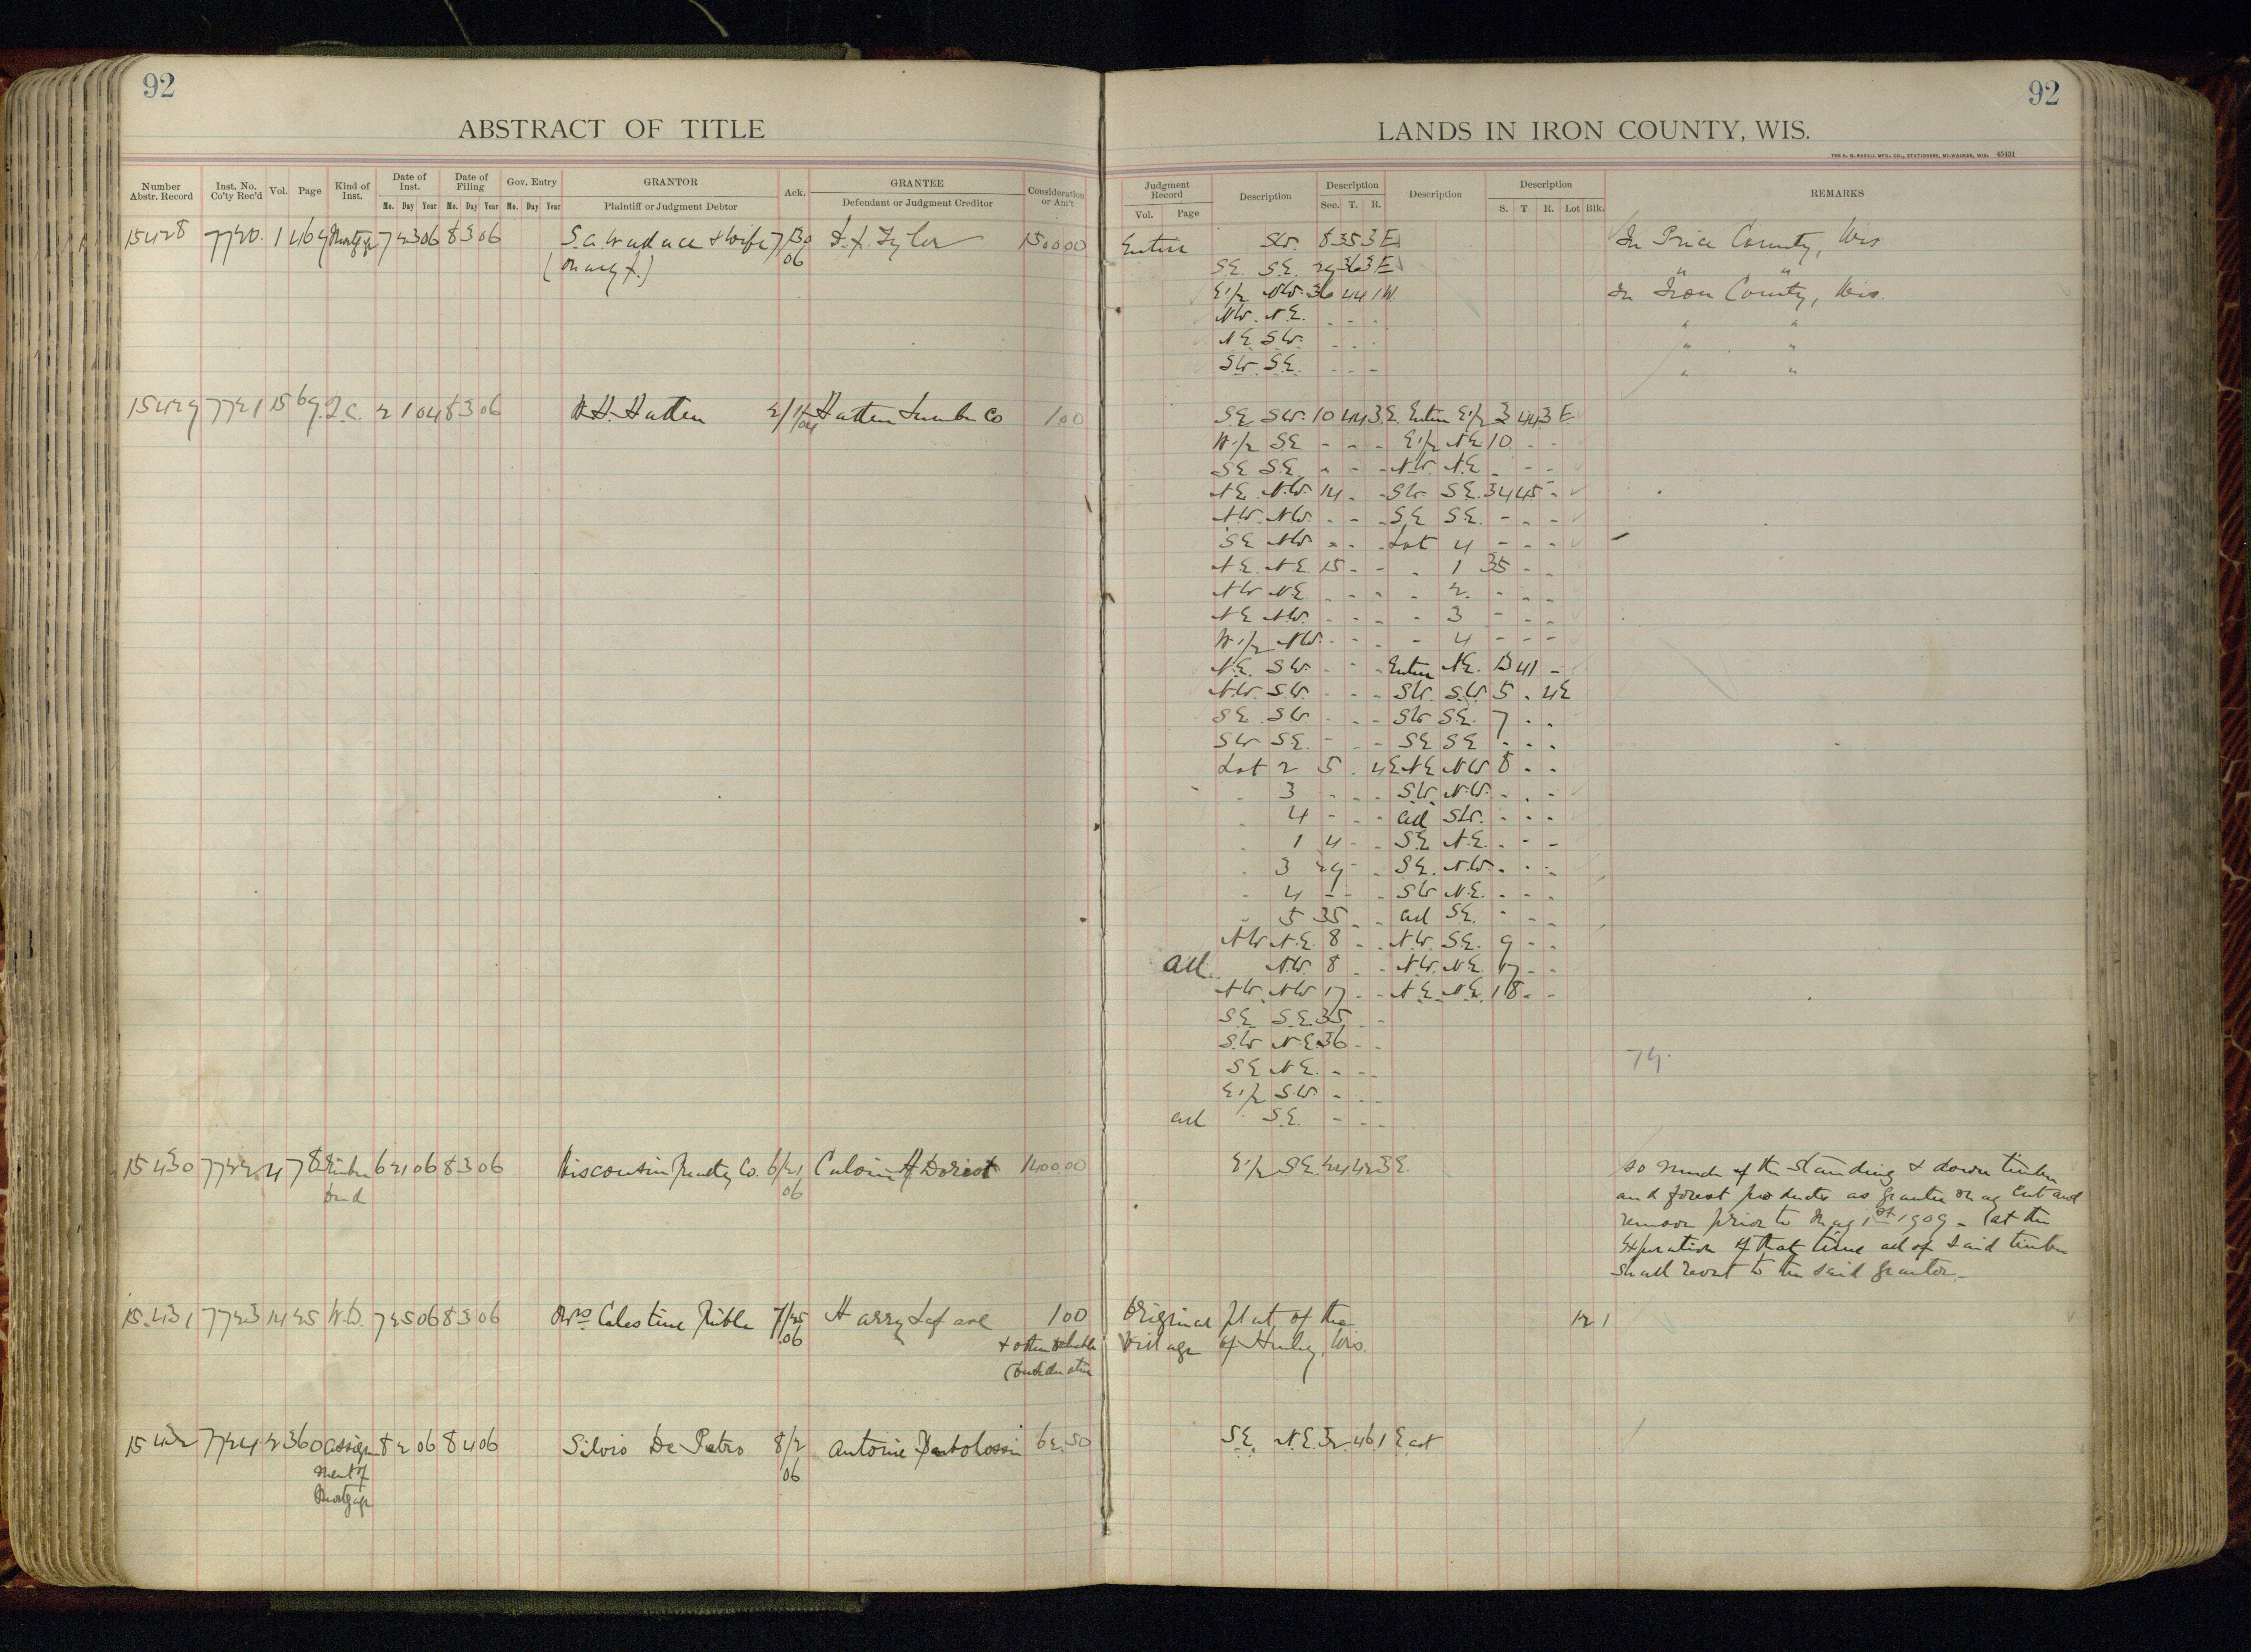 92
ABSTRACT OF TITLE
Number Abstr. Record Inst. No. Co'ty Rec'd Vol. Page Kind of Inst. Date of Inst. Date of Filing Gov. Entry GRANTOR Ack. GRANTEE Consideration or Am't
Mo. Day Year Mo. Day Year Mo. Day Year Plaintiff or Judgment Debtor Defendant or Judgment Creditor
15428 7720 1 469 Mortgage 7 23 06 8 3 06 S.A. Wallace & Wife 7/30 Tyler 1500 00
(Mary J.) 06
15429 7721 15 69 Q.C. 2 1 04 8 3 06 W.H. Hatten 2/1/04 Hatten Lumber Co 1.00
15430 7722 4 78 Timber 6 21 06 8 3 06 Wisconsin Realty Co. 6/21 Calvin H Doriot 1400.00
Deed 06
15431 7723 14 25 W.D. 7 25 06 8 3 06 Mrs Celestine 7/25 Harry Lafave 1 00
06 & other valuable
Consideration
15432 7724 2 360 Assign 8 2 06 8 4 06 Silvio De Petro 8/2 Antonie 62.50
ment of 06
Mortgage
92
LANDS IN IRON COUNTY, WIS.
THE H. G. RAZALL MFG. CO., STATIONERS, MILWAUKEE, WIS. 45431
Judgment Record Description Description Description Description REMARKS
Vol. Page Sec. T. R. S. T. R. Lot Blk.
Entire SW. 8 35 3 E In Price County, Wis
S.E. S.E. 29 36 3 E " "
E1/2 NW. 36 44 1 W. In Iron County, Wis.
NW. N.E. - - - " "
N.E. SW. - - - " "
SW. S.E. - - - " "
S.E. SW. 10 44 3 E. Entire E1/2 3 44 3 E.
W1/2 SE - - - E1/2 NE 10 - -
SE SE - - - NW. N.E. - - -
NE. NW. 14 - - SW SE. 34 45 -
NW. NW. - - - SE SE. - - -
SE NW - - - Lot 4 - - -
N.E. N.E. 15 - - - 1 35 - -
NW N.E - - - - 2. - - -
NE NW. - - - - 3 - - -
W1/2 NW. - - - - 4 - - -
N.E. SW. - - - Entire NE. 13 41 -
N.W. S.W. - - - SW. S.W. 5 - 4E
SE SW - - - SW SE. 7 - -
SW SE. - - - SE SE - - -
Lot 2 5 - 4E NE NW 8 - -
- 3 - - - SW. NW. - - -
- 4 - - - all SW. - - -
- 1 4 - - SE N.E. - - -
- 3 29 - - SE. N.W. - - -
- 4 - - - SW N.E. - - -
- 5 35 - - all SE. - - -
NW N.E. 8 - - N.W. SE. 9 - -
all NW. 8 - - N.W. NE. 17 - -
NW. NW 17 - - N.E. N.E. 18 - -
SE S.E. 35 - -
SW N.E. 36 - -
SE N.E. - - -
E1/2 SW - - -
all S.E. - - -
74.
E1/2 SE. 24 42 3 E. so much of the standing & down timber
and forest products as grantee may cut and
remove prior to May 1st 1909 - at the
expiration of that time all of said timber
shall revert to the said grantor.
Original plat of the 12 1
Village of Hurley, Wis.
S.E. N.E. 32 46 1 East